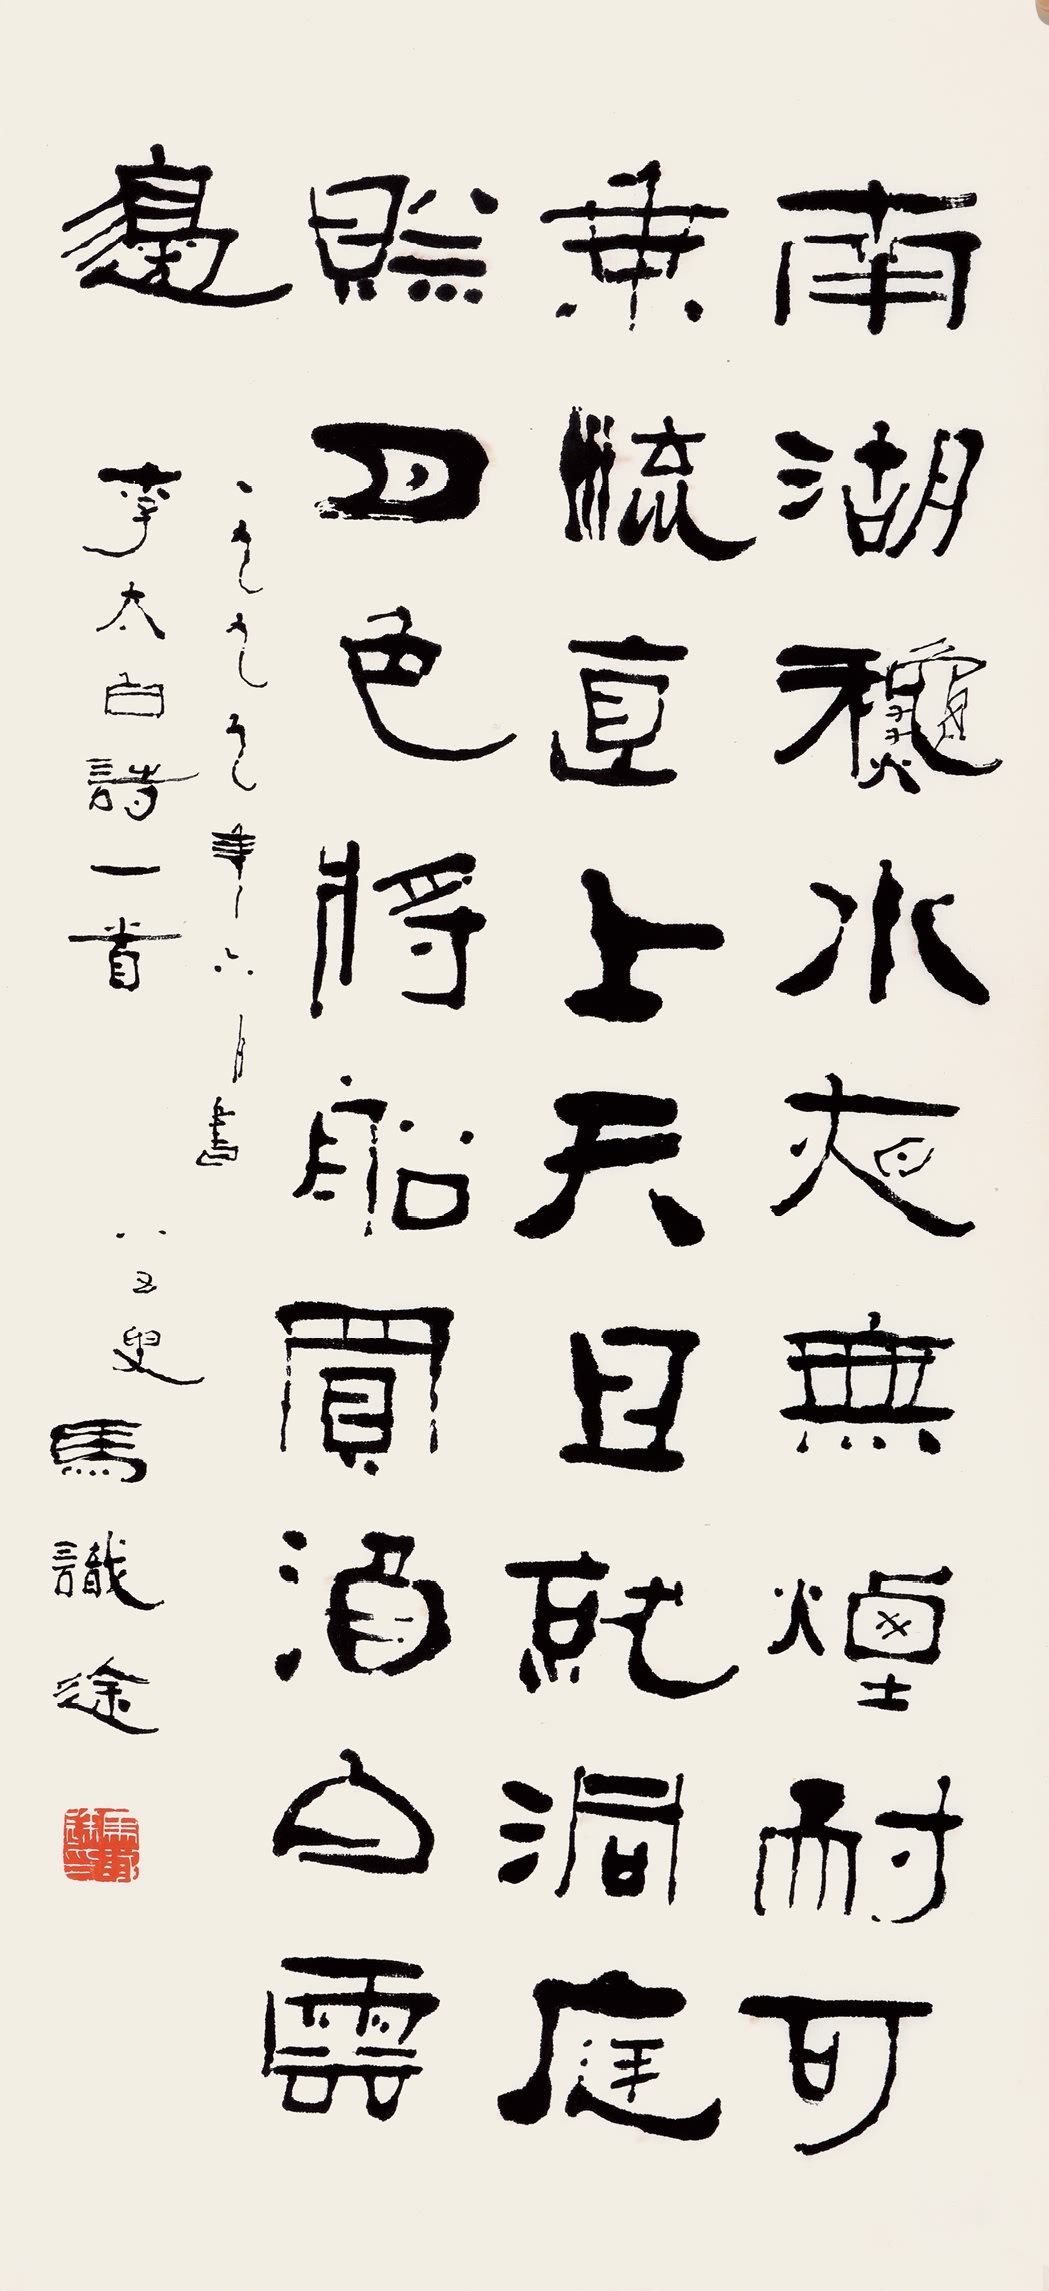 南湖龝水夜無煙耐可
乘流直上天且就洞庭
賒月色將船買酒白雲
邊
一九九九年六月書
李太白詩一首
八五叟
馬識途